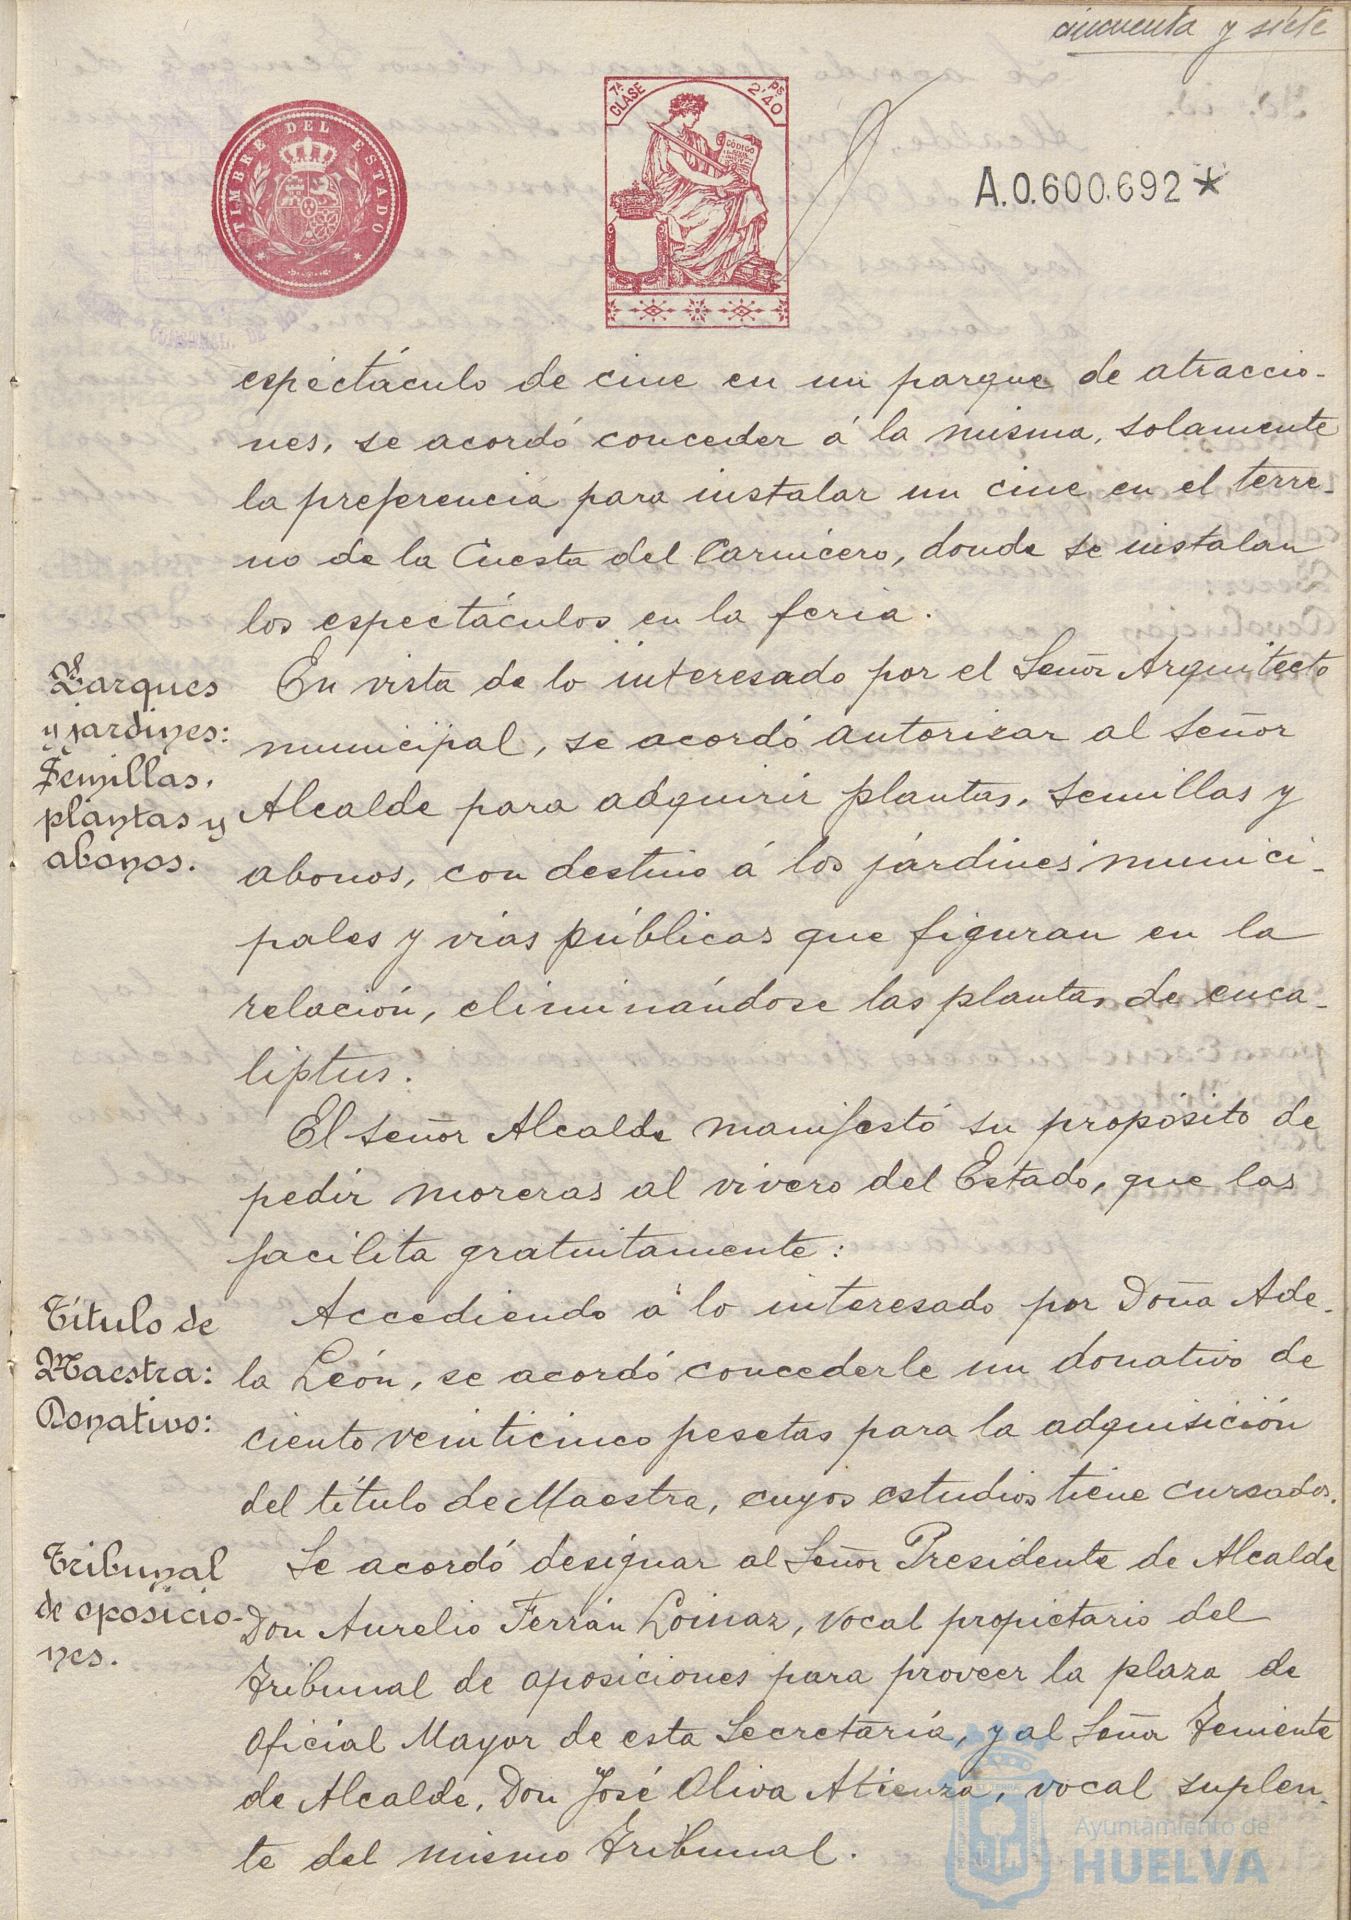 cincuenta y siete
TIMBRE DEL ESTADO
7ª CLASE
Ps 2'40
CÓDIGO
A.0.600.692*
espectáculo de cine en un parque de atraccio-
nes, se acordó conceder á la misma, solamente
la preferencia para instalar un cine en el terre-
no de la Cuesta del Carnicero, donde se instalan
los espectáculos en la feria.
Parques
y jardines:
Semillas,
plantas y
abonos.
En vista de lo interesado por el Señor Arquitecto
municipal, se acordó autorizar al Señor
Alcalde para adquirir plantas, semillas y
abonos, con destino á los jardines munici-
pales y vías públicas que figuran en la
relación, eliminándose las plantas de euca-
liptus.
El señor Alcalde manifestó su propósito de
pedir moreras al vivero del Estado, que las
facilita gratuitamente:
Título de
Maestra:
Donativo:
Accediendo á lo interesado por Doña Ade-
la León, se acordó concederle un donativo de
ciento veinticinco pesetas para la adquisición
del título de Maestra, cuyos estudios tiene cursados.
Tribunal
de oposicio-
nes.
Se acordó designar al Señor Presidente de Alcalde
Don Aurelio Ferrán Loinaz, vocal propietario del
Tribunal de oposiciones para proveer la plaza de
Oficial Mayor de esta Secretaría, y al Señor Teniente
de Alcalde, Don José Oliva Atienza, vocal suplen-
te del mismo Tribunal.
Ayuntamiento de
HUELVA